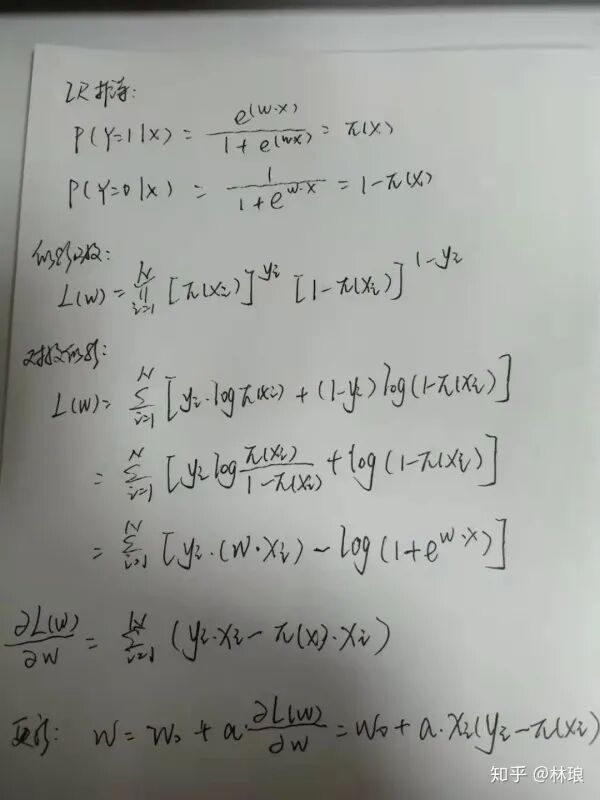 LR推导:
P(Y=1|x) = e^(w·x) / 1 + e^(wx) = π(x)
P(Y=0|x) = 1 / 1 + e^w·x = 1-π(x)
似然函数:
L(w) = ∏_{i=1}^N [π(xi)]^yi [1-π(xi)]^1-yi
对数似然:
L(w) = Σ_{i=1}^N [yi·logπ(xi) + (1-yi)log(1-π(xi)]
= Σ_{i=1}^N [yi log π(xi) / 1-π(xi) + log(1-π(xi)]
= Σ_{i=1}^N [yi·(w·xi) - log(1+e^w·x)]
∂L(w) / ∂w = Σ_{i=1}^N (yi·xi - π(x)·xi)
更新: w = w0 + a·∂L(w) / ∂w = w0 + a·xi(yi-π(xi)
知乎 @林琅